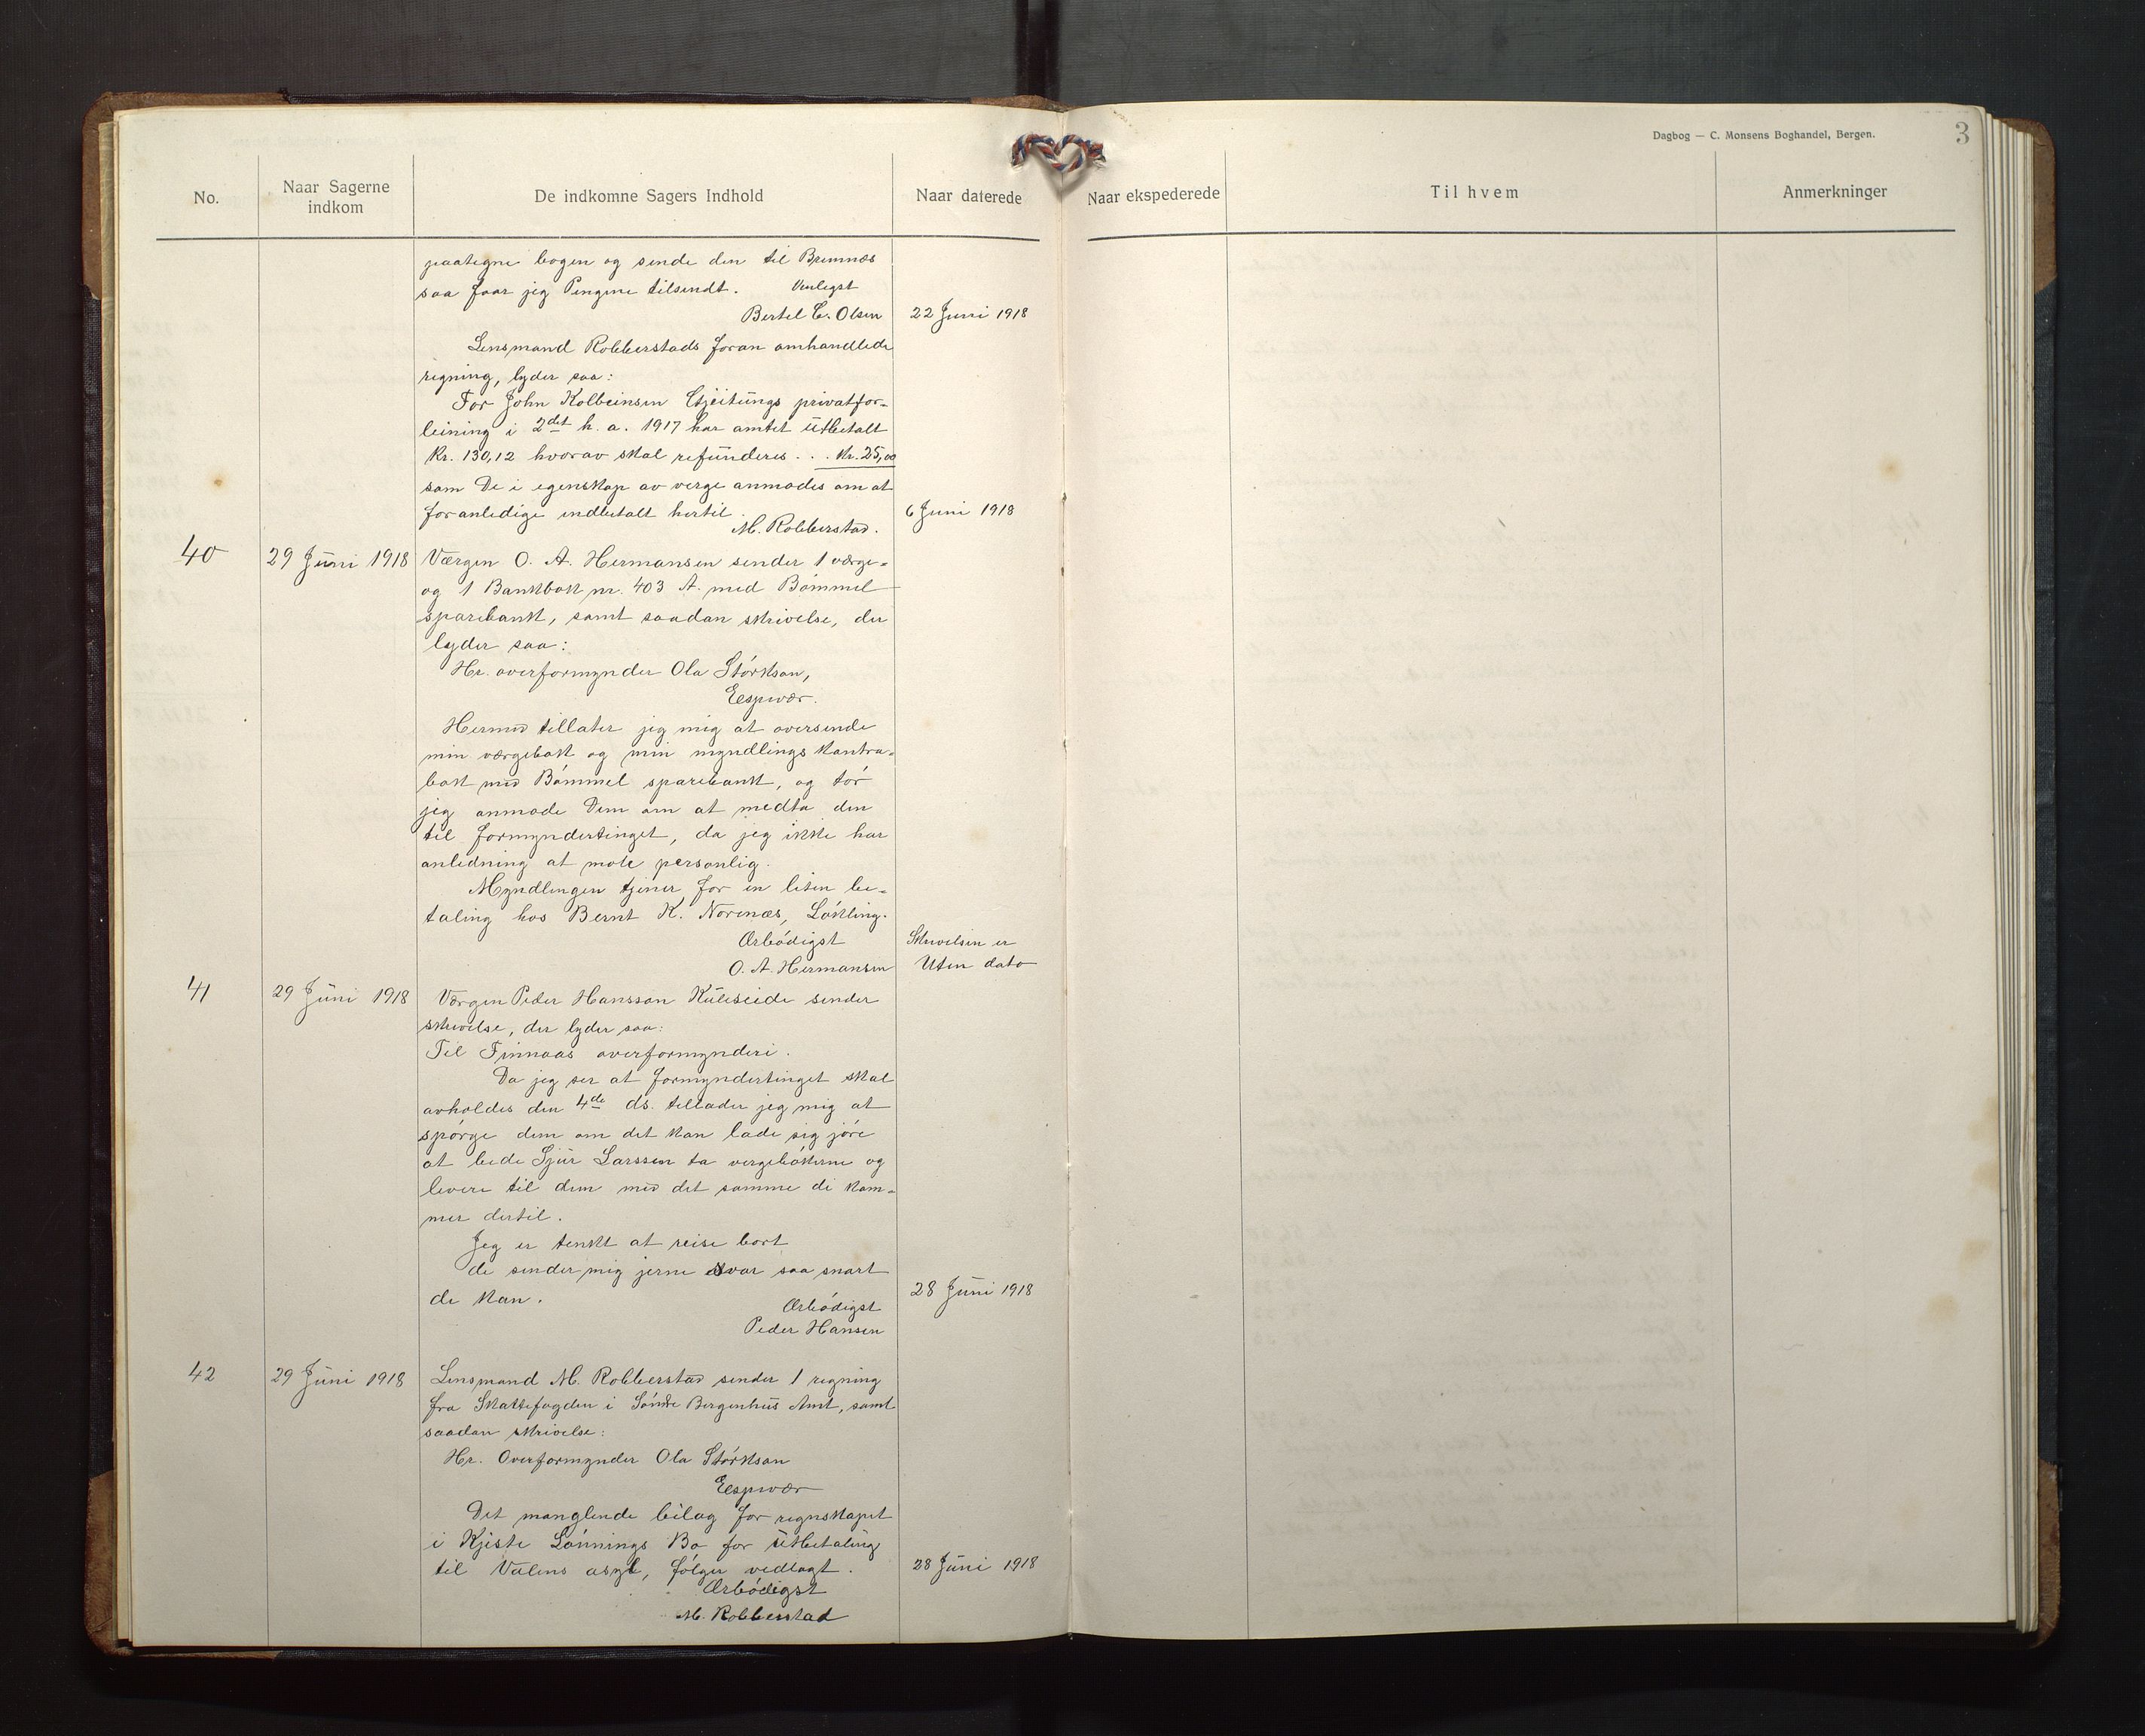 Dagbog — C. Monsens Boghandel, Bergen.
3
No.
Naar Sagerne indkom
De indkomne Sagers Indhold
Naar daterede
Naar ekspederede
Til hvem
Anmerkninger
paategne bogen og sende den til Bremnes
saa faar jeg Pengene tilsendt. Venligst
Bertel C. Olsen 22 Juni 1918
Lensmand Robberstads foran omhandlede
regning, lyder saa:
For John Kolbeinsen Gjeitungs privatfor-
leining i 2det h. a. 1917 har amtet utbetalt
Kr. 130,12 hvorav skal refunderes . . . Kr. 25,00
som De i egenskap av verge anmodes om at
foranledige indbetalt hertil. 6 Juni 1918
M. Robberstad.
40 29 Juni 1918 Værgen O. A. Hermansen sender 1 værge-
og 1 Bankbok nr. 403 A. med Bømmel
sparebank, samt saadan skrivelse, der
lyder saa:
Hr. overformynder Ola Størkson,
Espevær.
Hermed tillater jeg mig at oversende
min værgebok og min myndlings kontra-
bok med Bømmel sparebank, og tør
jeg anmode Dem om at medta den
til formyndertinget, da jeg ikke har
anledning at møte personlig.
Myndlingen tjener for en liten be-
taling hos Bernt K. Nornæs, Løkling.
Ærbødigst Skrivelsen er
O. A. Hermansen Uten dato
41 29 Juni 1918 Værgen Peder Hansson Kuleseide sender
skrivelse, der lyder saa:
Til Finnaas overformynderi.
Da jeg ser at formyndertinget skal
avholdes den 4de ds. tillader jeg mig at
spørge dem om det kan lade sig jøre
at bede Sjur Larssen ta vergebøkerne og
levere til dem med det samme di kom-
mer dertil.
Jeg er tenkt at reise bort
de sender mig jerne svar saa snart
de kan. 28 Juni 1918
Ærbødigst
Peder Hansen
42 29 Juni 1918 Lensmand M. Robberstad sender 1 regning
fra Skattefogden i Søndre Bergenhus Amt, samt
saadan skrivelse:
Hr. Overformynder Ola Størkson
Espevær
Det manglende bilag for regnskapet
i Kjeste Lønnings Bo for utbetaling
til Valens asyl, følger vedlagt. 28 Juni 1918
Ærbødigst
M. Robberstad